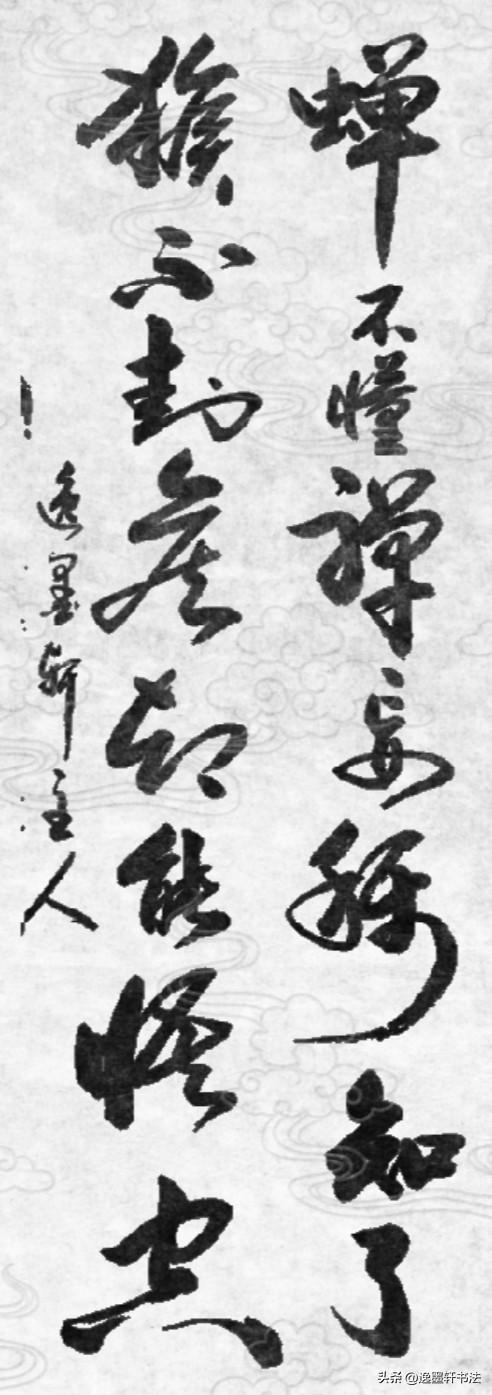 蝉不懂禅妄称知了
猴不封侯却能悟空
逸墨轩主人
头条 @逸墨轩书法